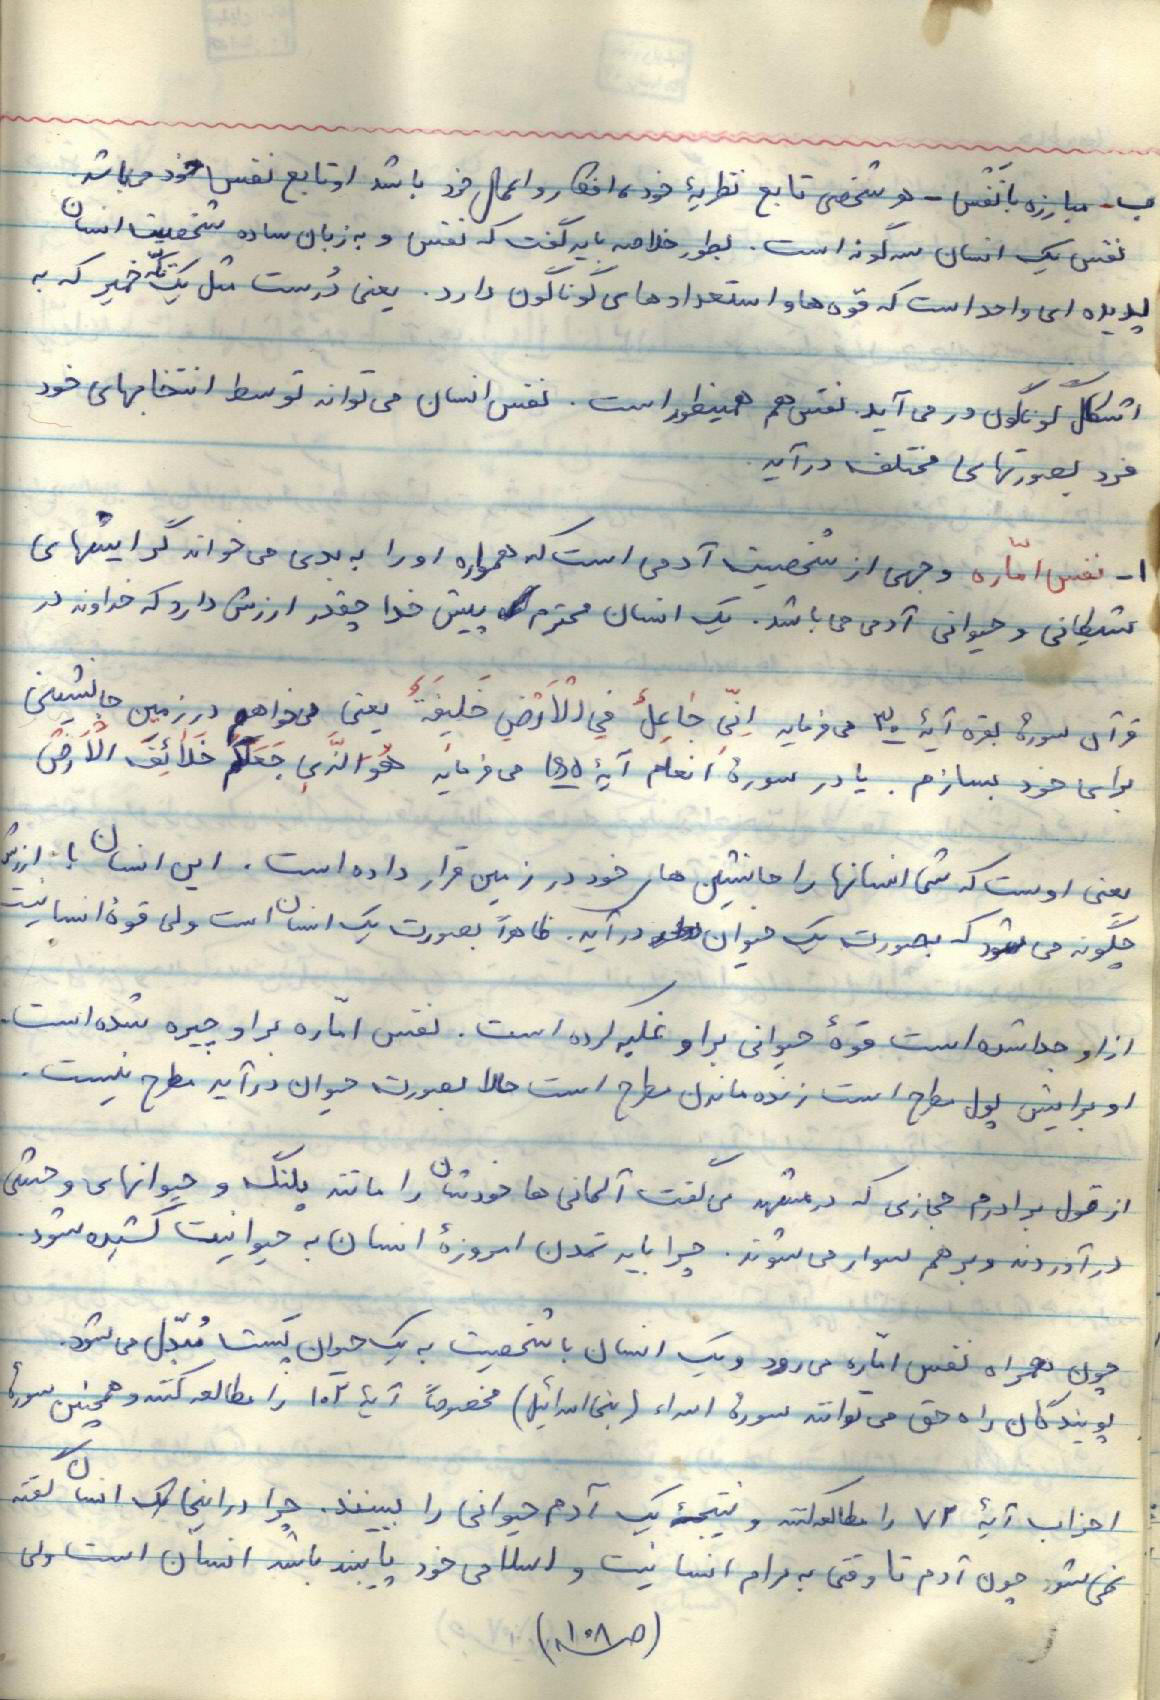 ب - مبارزه با نَفْس - هر شخصی تابع نظریهٔ خود، افکار و اعمال خود باشد او تابع نفس خود می‌باشد.
نفس یک انسان سه گونه است. بطور خلاصه باید گفت که نفس و به زبان ساده شخصیت انسان
پدیده ای واحد است که قوه ها و استعدادهای گوناگون دارد. یعنی دُرست مثل یک تکّه خمیر که به
اشکال گوناگون در می آید. نفس هم همینطور است. نفس انسان می تواند توسط انتخابهای خود
فرد بصورتهای مختلف درآید.
۱- نفس امّاره وجهی از شخصیت آدمی است که همواره او را به بدی می خواند گرایشهای
شیطانی و حیوانی آدمی می باشد. یک انسان محترم پیش خدا چقدر ارزش دارد که خداوند در
قرآن سورهٔ بقره آیهٔ ۳۰ می فرماید اِنّی جَاعِلٌ فِی الْاَرْضِ خَلیفَةً یعنی می خواهم در زمین جانشینی
برای خود بسازم. یا در سورهٔ اَنعام آیهٔ ۱۶۵ می فرماید هُوَ الَّذَی جَعَلَکُم خَلَائِفَ الْاَرْضَ
یعنی اوست که شما انسانها را جانشین های خود در زمین قرار داده است. این انسان با ارزش
چگونه می شود که بصورت یک حیوان درآید. ظاهراً بصورت یک انسان است ولی قوهٔ انسانیت
از او جدا شده است قوهٔ حیوانی بر او غلبه کرده است. نفس امّاره بر او چیره شده است.
او برایش پول مطرح است زنده ماندن مطرح است حالا بصورت حیوان درآید مطرح نیست.
از قول برادرم حجازی که در مشهد می گفت آلمانی ها خودشان را مانند پلنگ و حیوانهای وحشی
در آوردند و بر هم سوار می شوند. چرا باید تمدن امروزهٔ انسان به حیوانیت کشیده شود.
چون همراه نفس امّاره می رود و یک انسان با شخصیت به یک حیوان پَست مُبدّل می شود.
پویندگان راه حق می توانند سورهٔ اسراء (بنی اسرائیل) مخصوصاً آیهٔ ۱۰۲ را مطالعه کنند و همچنین سورهٔ
احزاب آیهٔ ۷۲ را مطالعه کنند و نتیجهٔ یک آدم حیوانی را ببینند. چرا در اینجا انسان گفته
نمی شود چون آدم تا وقتی به مرام انسانیت و اسلامی خود پایبند باشد انسان است ولی
(صـ ۱۰۸)